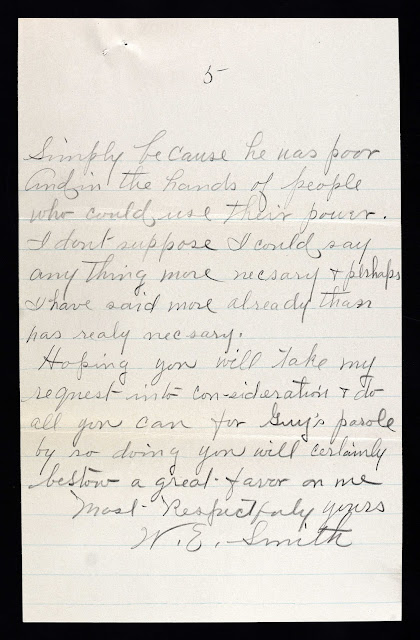 5
Simply because he was poor
And in the hands of people
who could use their power.
I dont suppose I could say
any thing more necsary & perhaps
I have said more already than
was realy necsary.
Hoping you will take my
request into con-sideration & do
all you can for Guy's parole
by so doing you will certainly
bestow a great favor on me
Most Respectfuly yours
W. E. Smith